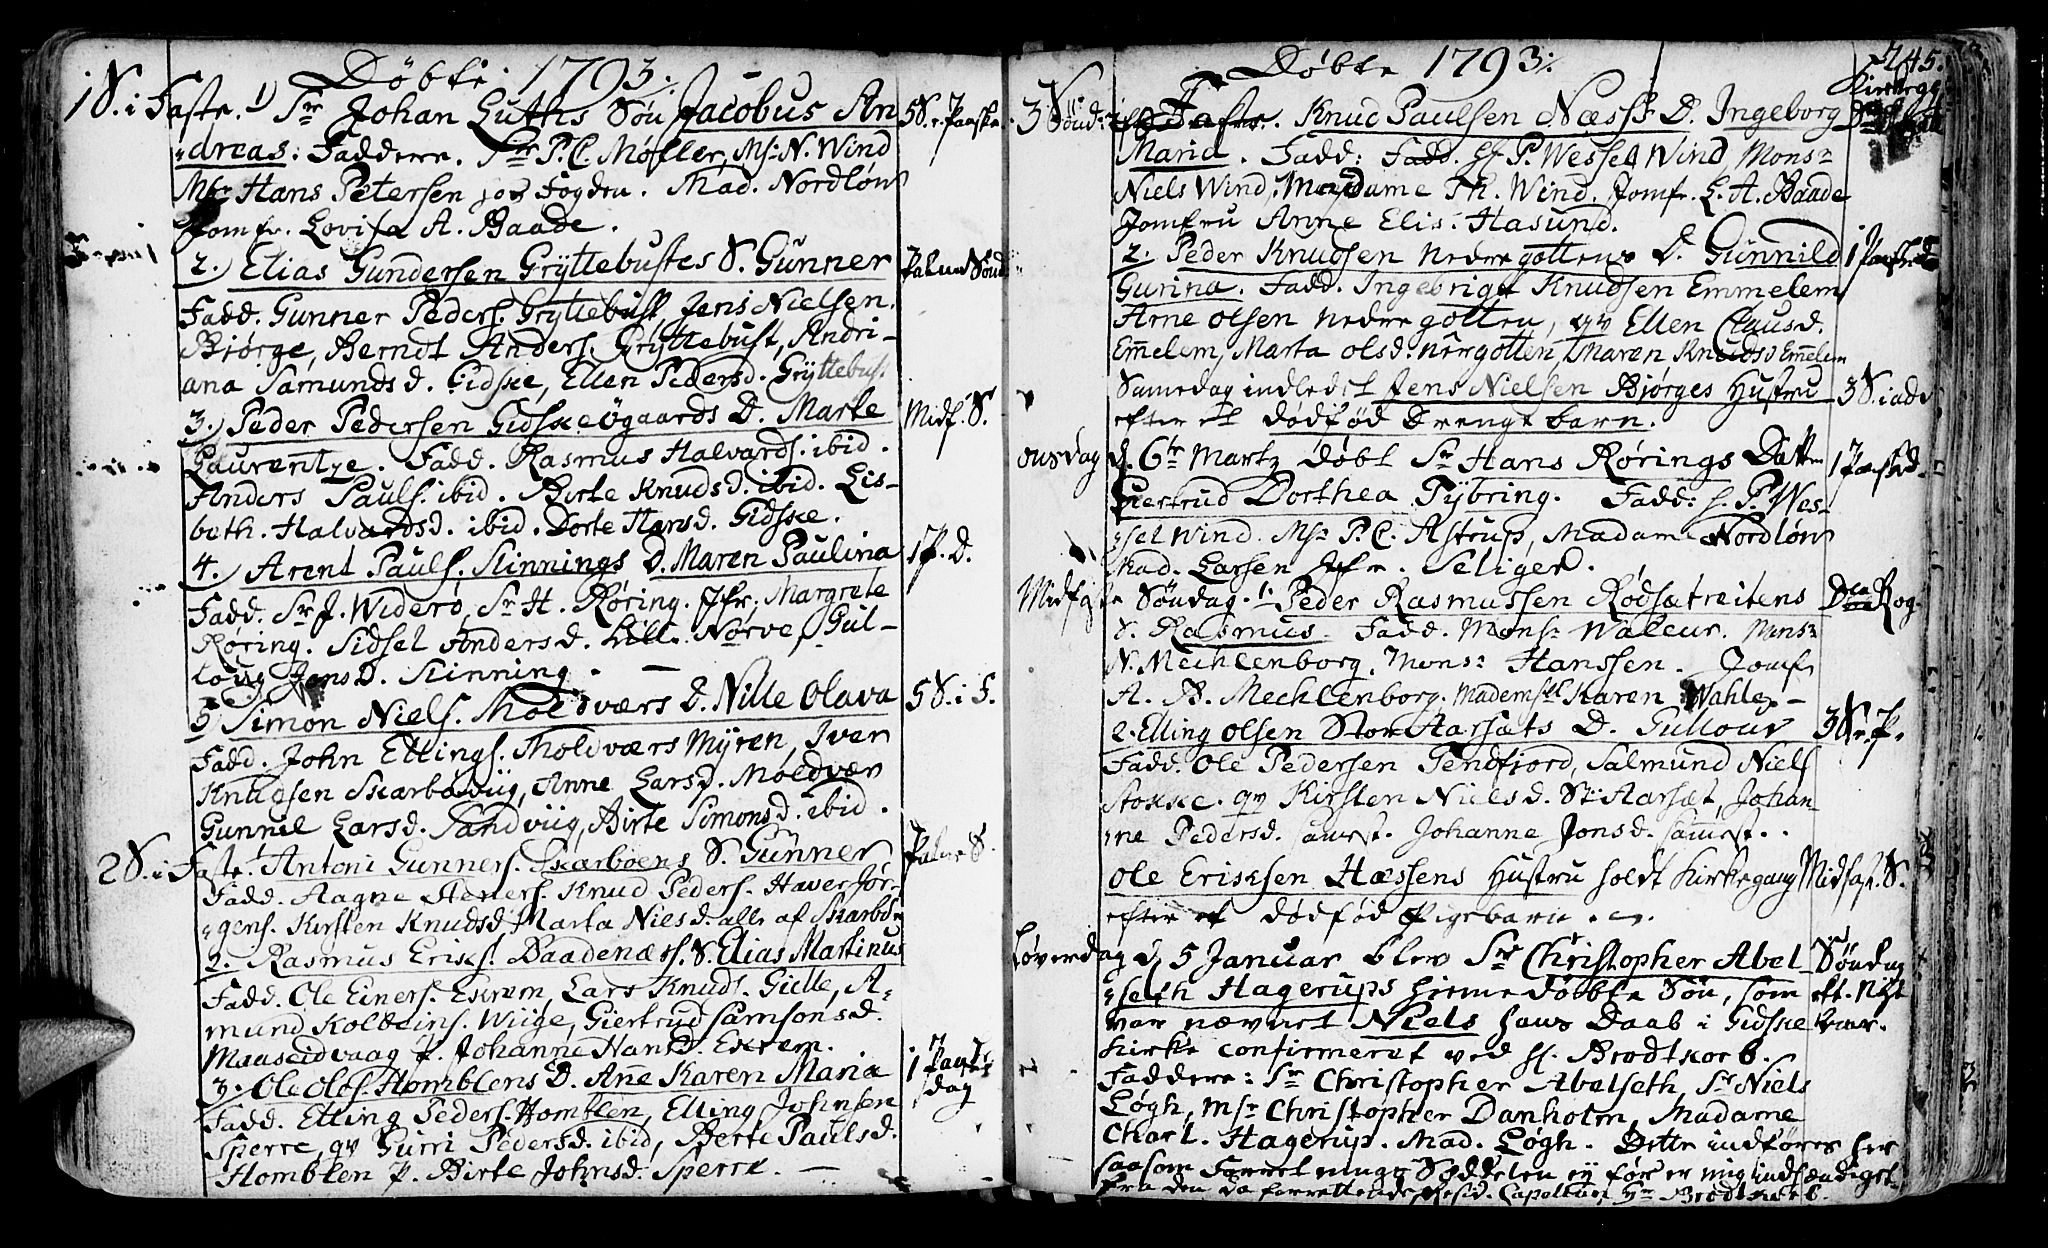 Døbte 1793.
1 S. i Faste. 1) Sr Johan Guths Søn Jacobus An
dreas. Faddere. Sr P. C. Møller, Ms. N. Wind 5 S. e. Paaske
Mr Hans Petersen hos Fogden. Mad. Nordløw
Jomfr. Lovisa A. Baade.
2.) Elias Gundersen Gryttebustes S. Gunner Palme Sønd
Fadd. Gunner Peders. Gryttebust Jens Nielsen
Bjørge, Berndt Anders. Gryttebust, Andri-
ana Samunds d. Gidske, Ellen Peders d. Gryttebust
3.) Peder Pedersen Gidskeøgaards D. Marte Midf. S.
Laurentze. Fadd. Rasmus Halvards. ibid.
Anders Pauls. ibid. Birte Knuds d. ibid. Lis-
beth. Halvards d. ibid. Dorte Hans d. Gidske.
4.) Arent Pauls. Slinnings D. Maren Paulina 1 P. D.
Fadd. Sr J. Widerø, Sr H. Røring. Jfr. Margrete
Røring. Sidsel Anders d. Lille Nørve, Gul-
loug Jens D. Slinning.
5) Simon Niels. Moldværs D. Nille Olava 5 S. i F.
Fadd. John Ellings. Moldværs Myren, Iver
Knudsen Skarbøviig, Anne Lars d. Moldvær
Gunnil Lars d. Sandviig, Birte Simons d. ibid.
2 S. i Faste. 1 Antoni Gunners. Skarbøens S. Gunner Palme S.
Fadd. Aagne Abners. Knud Peders. Haver Jør-
gens. Kirsten Knuds d. Marta Niels d. alle af Skarbøe
2. Rasmus Eriks. Baadenæss. S. Elias Martinus
Fadd. Ole Einers. Exrem, Lars Knuds. Giette, A-
mund Kolbeins. Wiige, Giertrud Samsons d.
Maaseidvaag P. Johanne Hans D. Exrem.
3. Ole Ols. Homblens D. Anne Karen Maria 1 Paaske
dag
Fadd. Elling Peders. Homblen, Elling Johnsen
Sperre, qv Gurri Peders d. ibid, Berte Pauls d.
Homblen P. Birte Johns d. Sperre.
Døbte 1793. 245.
Kirkegg
3 Sønd: i Faste. Knud Paulsen Næss D. Ingeborg
Maria. Fadd: Fadd. H. P. Wessel Wind, Mons.
Niels Wind, Madame Th. Wind, Jomfr. L. A. Baade
Jomfru Anne Elis. Hasund.
2. Peder Knudsen Nedregottens D. Gunnild 1 Paaske
Gurina. Fadd. Ingebrigt Knudsen Emmelem
Arne Olsen Nedregotten, qv Ellen Claus d.
Emelem, Marta Ols d. Nørgotten, Maren Knuds d Emelem
Samedag indledet Jens Nielsen Bjørges Hustru 3 S. i adv
efter et dødfød Drenge barn.
onsdag d. 6te Martz døbt Sr Hans Rørings Datter 1 Paaskd.
Giertrud Dorthea Tybring. Fadd: H. P. Wes-
sel Wind. Ms. P. C. Astrup, Madam Nordløw
Mad. Larsen Jfr. Seliger.
Midfaste Søndag. 1. Peder Rasmussen Rødsætreitens Dca Rog.
S. Rasmus. Fadd. Mons. Waleur. Mons.
N. Mechlenborg, Mons. Hanssen. Jomfr.
A. B. Mechlenborg. Mademsel Karen Wahle.
2. Elling Olsen Stor Aarsæts D. Gullouv 3 S. e. P.
Fadd. Ole Pedersen Tendfjord, Salmund Niels
Stokke. qv Kirsten Niels d. St: Aarsæt, Johan
ne Peders d. samest. Johanne Jons d. samest.
Ole Eriksen Hæssens Hustru holdt Kirkegang Midfast. S.
efter et dødfød Pigebarn.
Løverdag d. 5 Januar blev Sr Christopher Abel Søndag
seth Hagerups hieme døbte Søn, som eft. Nyt
var nævnet Niels hans Daab i Gidske Aar.
Kirke confirmeret ved H. Brodtkorb.
Faddere: Sr Christopher Abelseth, Sr Niels
Løgh, Msr Christopher Danholm, Madame
Charl. Hagerup. Mad. Løgh. Dette indføres her
saasom Seddelen ej før er mig indsændiget
fra den da forrettende Resid. Capellan Hr Brodtkorb.